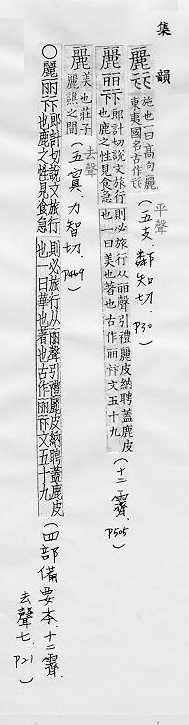 集韻
麗 丽 𠀙 施也一曰高句麗東夷國名古作丽 平聲 （五支 鄰知切. P30）
麗 丽 𠀙 郎計切說文旅行也鹿之性見食急則必旅行从鹿丽聲引禮麗皮納聘蓋鹿皮也一曰美也著也古作丽𠀙文五十九 （十二霽. P505）
麗 美也莊子麗譙之閒 去聲 （五寘 力智切. P469）
○麗 丽 𠀙 郎計切說文旅行也鹿之性見食急則必旅行从鹿丽聲引禮麗皮納聘蓋鹿皮也一曰華也著也古作丽𠀙文五十九 （四部備要本. 十二霽. 去聲七. P21）